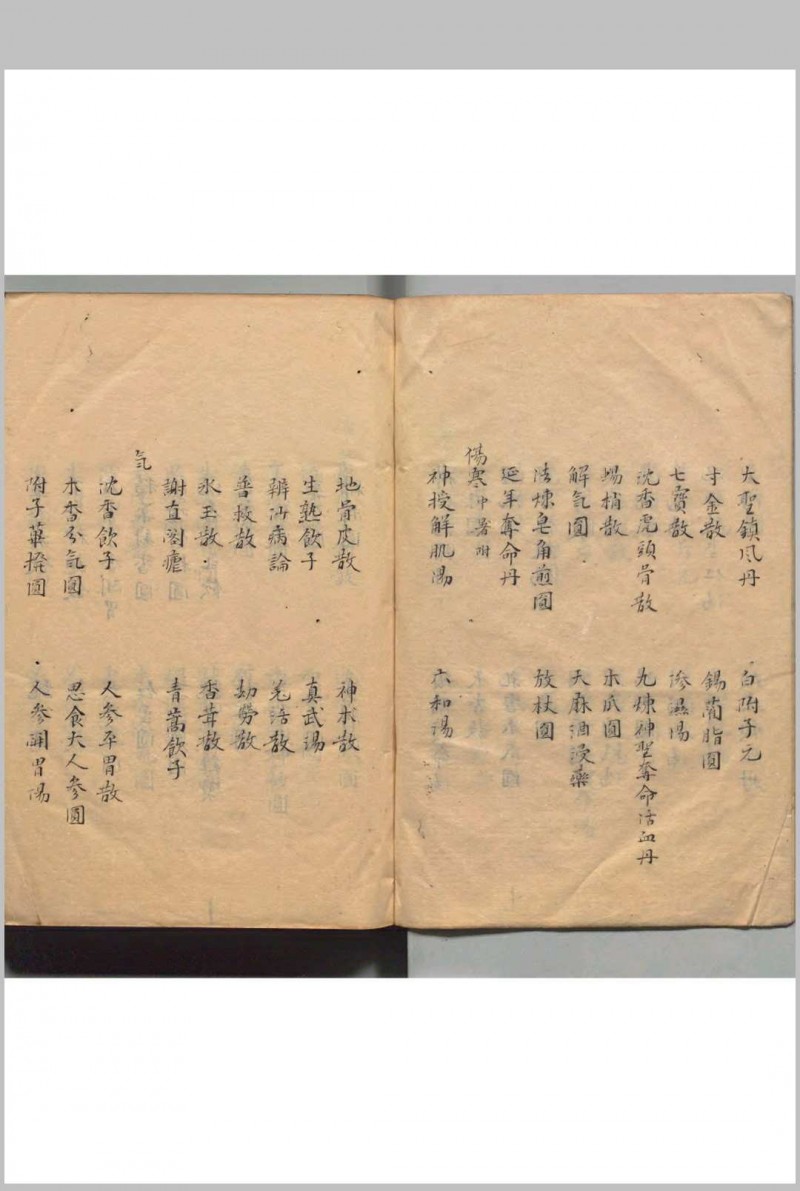 大聖鎮风丹　白附子元
寸金散　錫藺脂圓
七寳散　滲濕湯
沈香虎頭骨散　九煉神聖奪命活血丹
蝎梢散　木瓜圓
解氣圓　天麻酒浸藥
法煉皂角煎圓　放杖圓
延年奪命丹
傷寒中暑附
神授解肌湯　六和湯
地骨皮散　神术散
生熟飲子　真武湯
辨沙病論　羌活散
善救散　劫勞散
氷玉散　香茸散
謝直閣瘧　青蒿飲子
气
沈香飲子　人参平胃散
木香分气圓　思食大人参圓
附子蓽撥圓　人参開胃湯